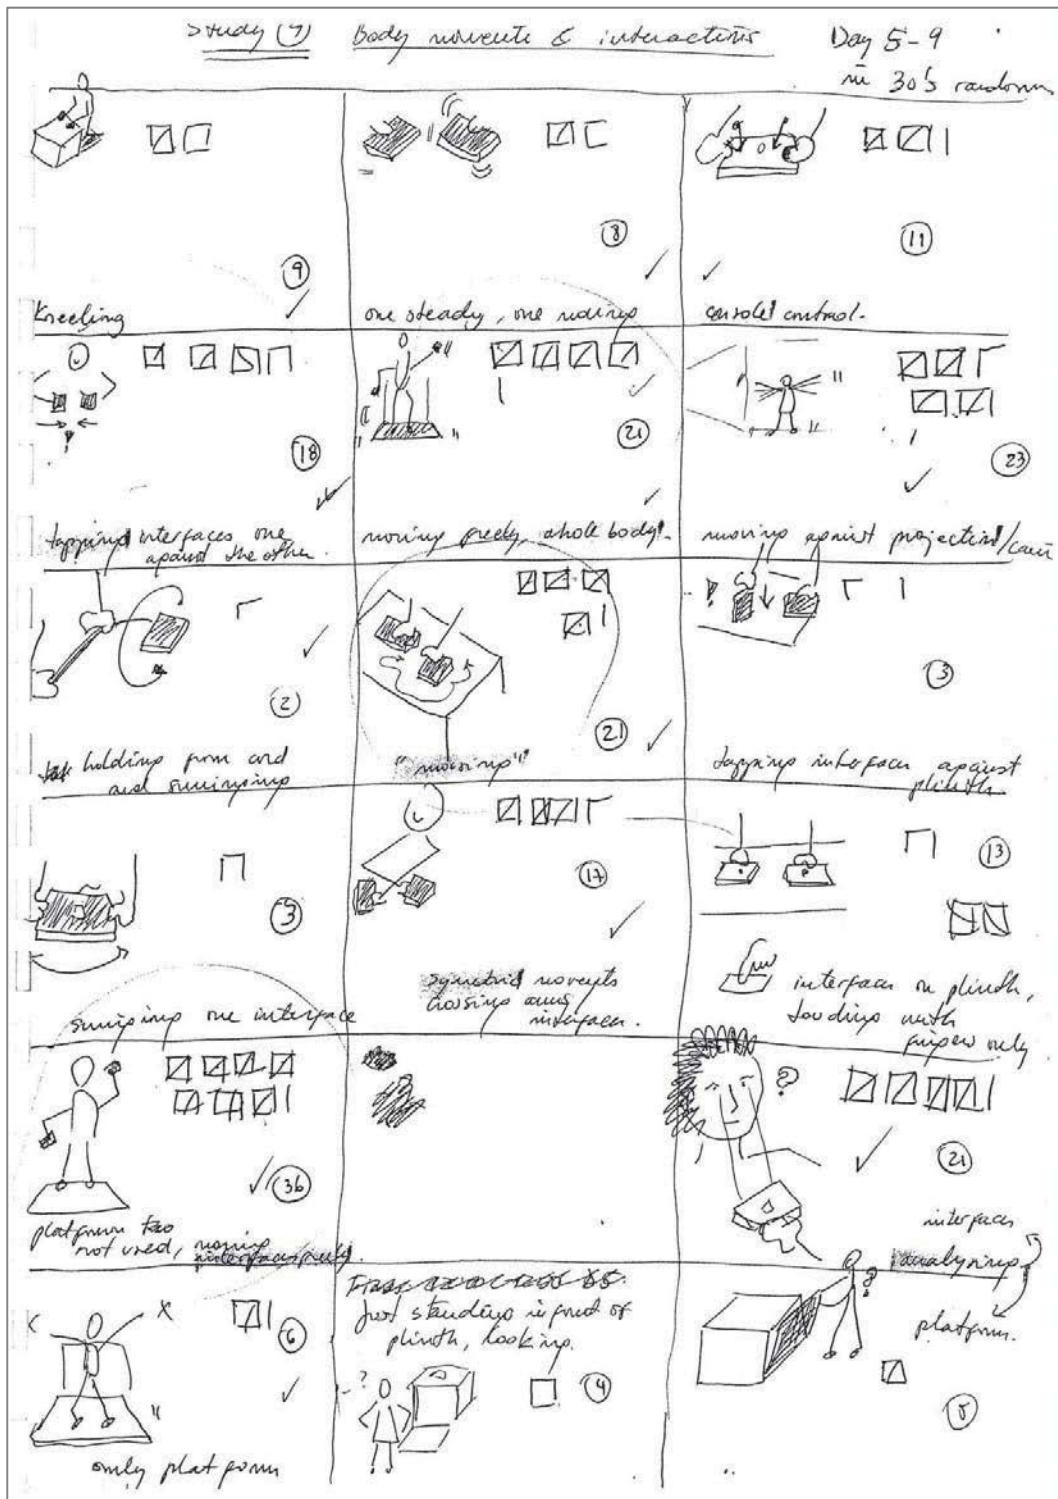 Study (4) Body movements & interactions Day 5-9
30's random
9
Kneeling
8
one steady, one moving
11
console control.
18
tapping interfaces one
against the other.
21
moving freely, whole body!
23
moving against projection/cam
2
holding from cord
and swinging
21
"moving"
3
tapping interface against
plinth.
3
swinging one interface
17
symetrid movements
crossing arms
interfaces.
13
interfaces on plinth,
touching with
fingers only
36
platform
not used, moving
interfaces freely.
?
21
interfaces
analysing
platform.
5
6
only platform
Just standing in front of
plinth, looking.
?
4